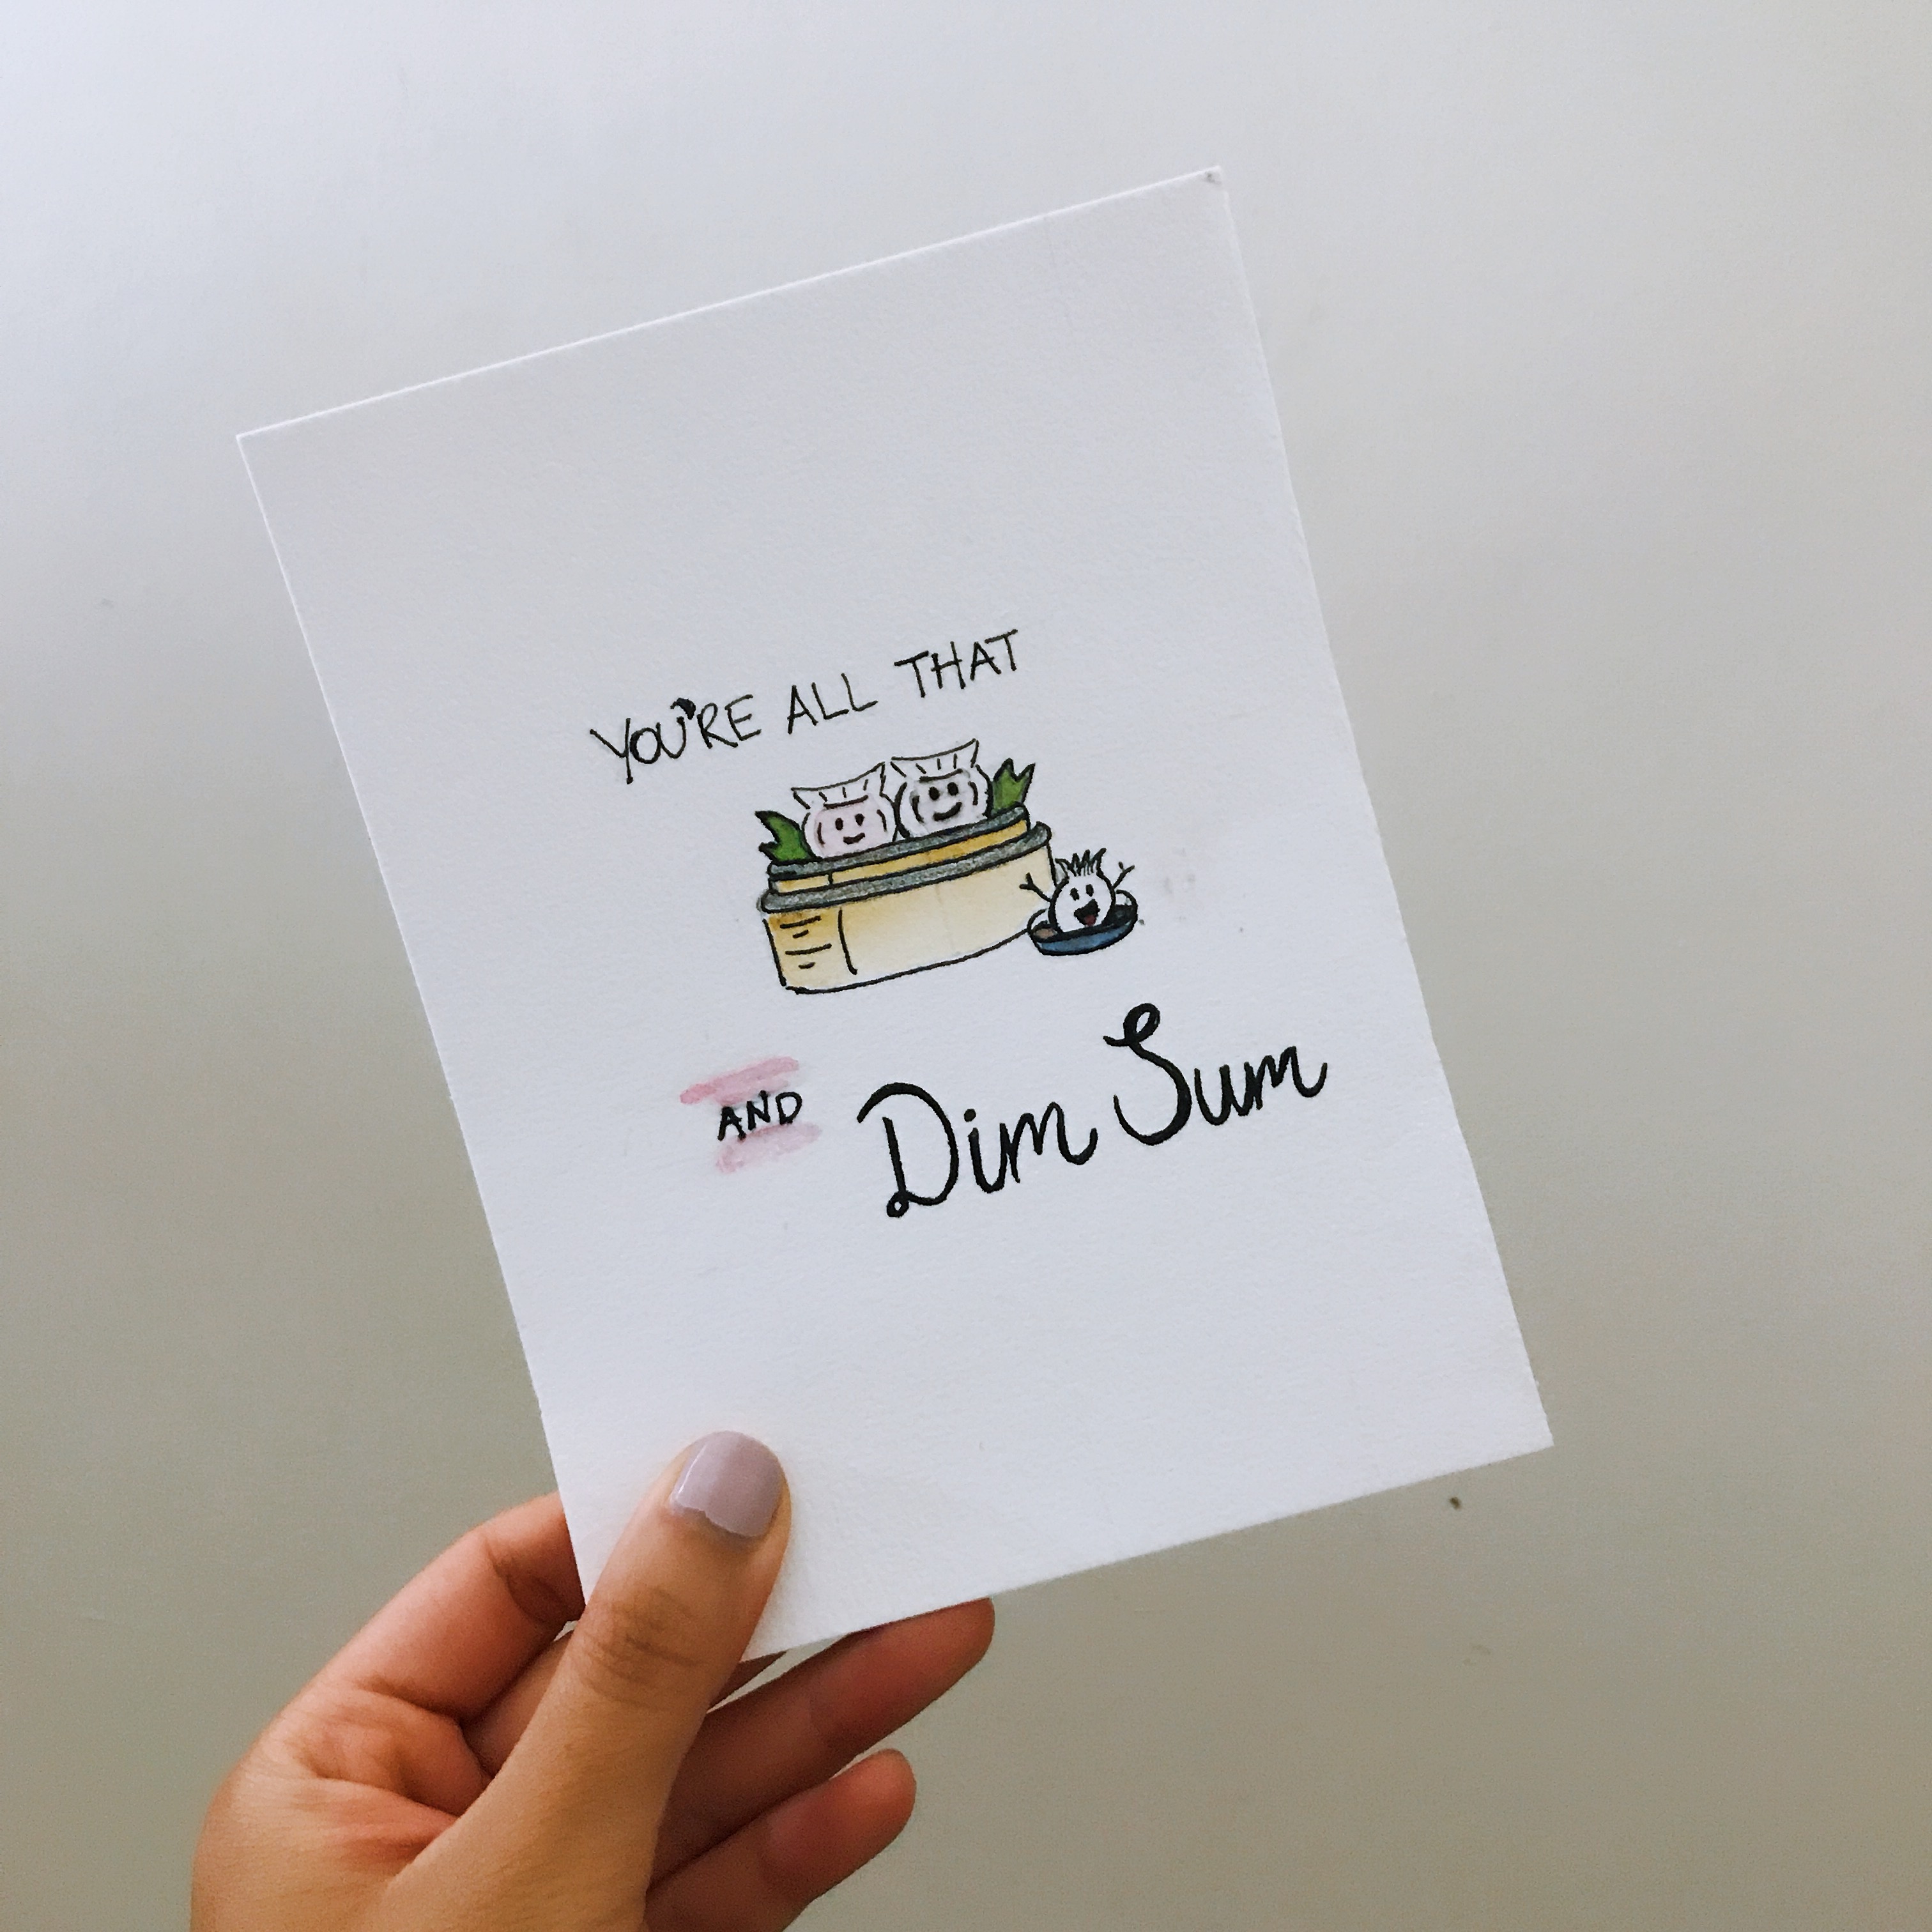 YOU'RE ALL THAT
AND Dim Sum